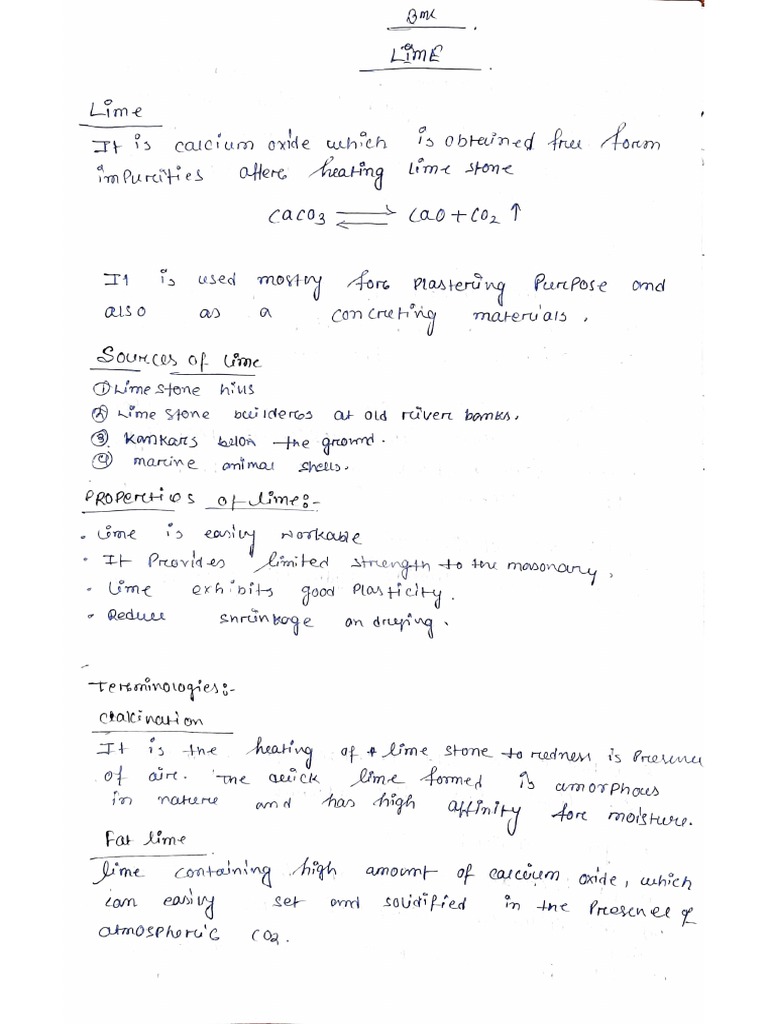 Bmc
LIME
Lime
It is calcium oxide which is obtained free form
impurities after heating lime stone
CaCO3 ⇌ CaO + CO2 ↑
It is used mostly for plastering purpose and
also as a concreting materials.
Sources of lime
① Lime stone hills
② Lime stone builders at old river banks.
③ Kankars below the ground.
④ marine animal shells.
Properties of lime:-
• Lime is easily workable
• It Provides limited strength to the masonary,
• Lime exhibits good Plasticity.
• Reduce shrinkage on drying.
Terminologies:-
Calcination
It is the heating of lime stone to redness is Presence
of air. The quick lime formed is amorphous
in nature and has high affinity for moisture.
Fat lime
lime containing high amount of calcium oxide, which
can easily set and solidified in the Presence of
atmospheric CO2.